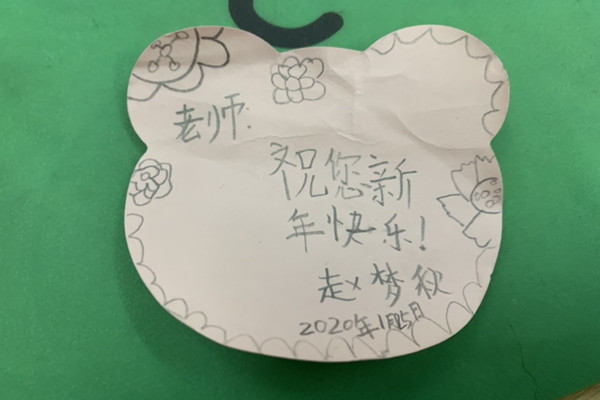 老师:
祝您新
年快乐!
赵梦秋
2020年1月25日